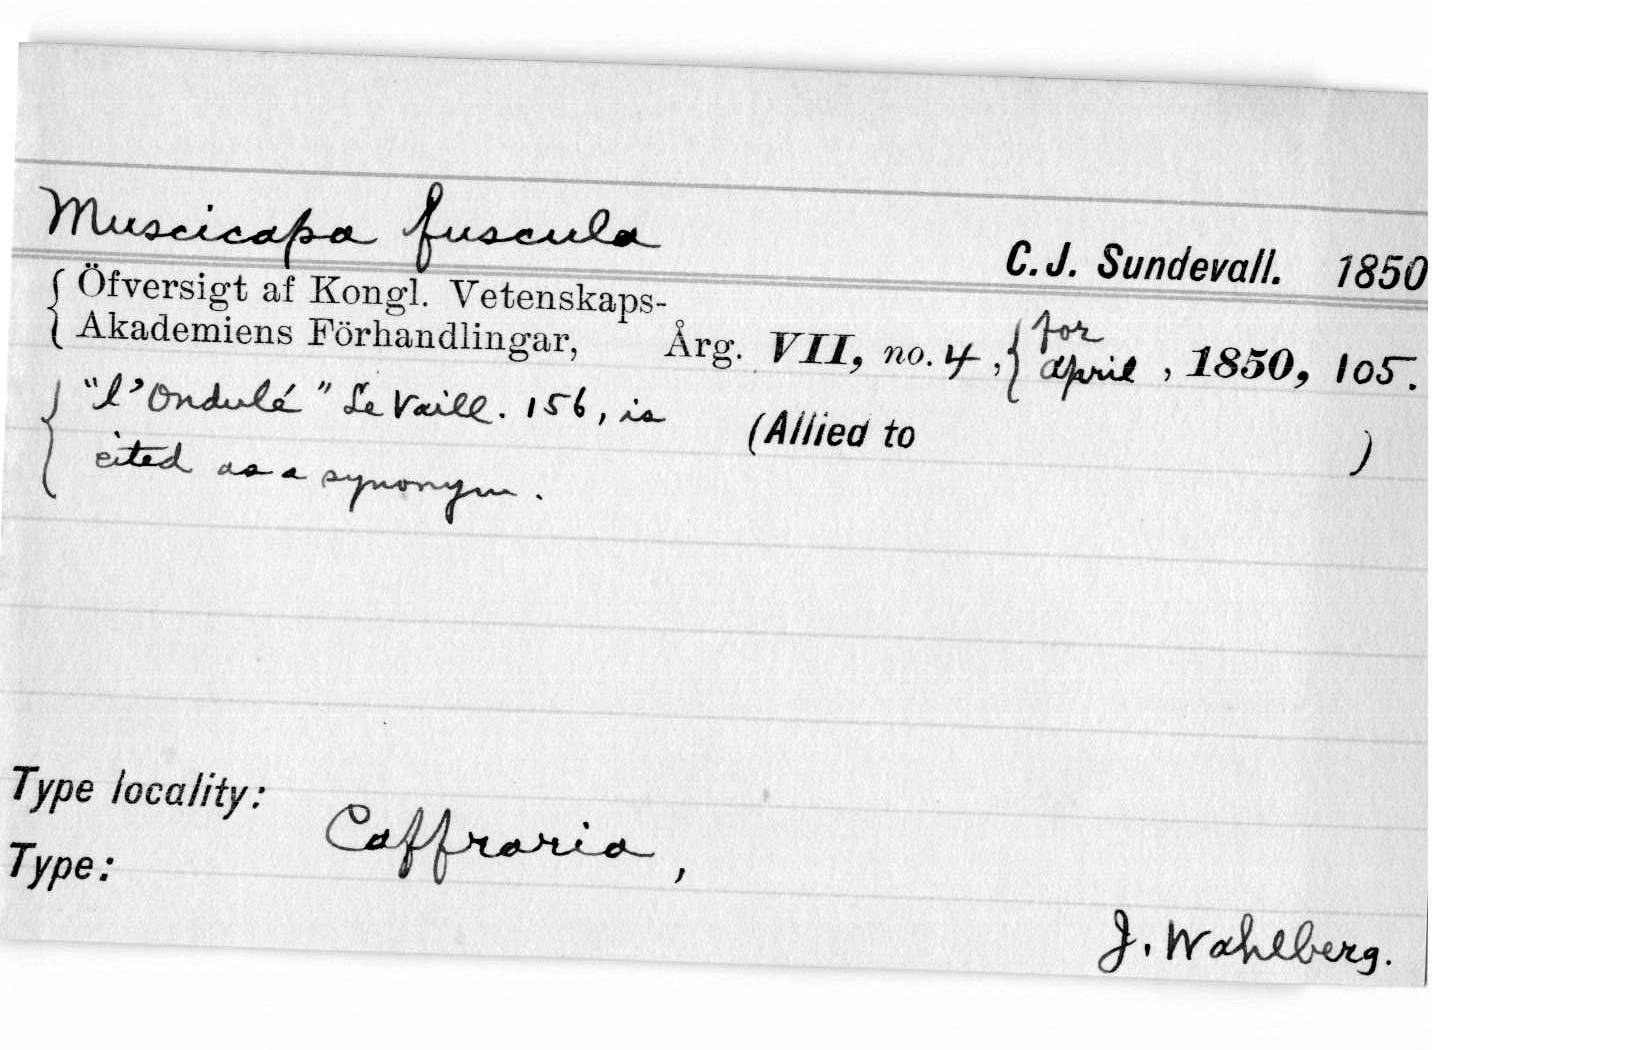 Muscicapa fuscula
C. J. Sundevall. 1850
Öfversigt af Kongl. Vetenskaps-
Akademiens Förhandlingar, Årg. VII, no. 4, { for April, 1850, 105.
"l'Ondulé" Le Vaill. 156, is
cited as a synonym.
(Allied to )
Type locality:
Caffraria,
Type:
J. Wahlberg.